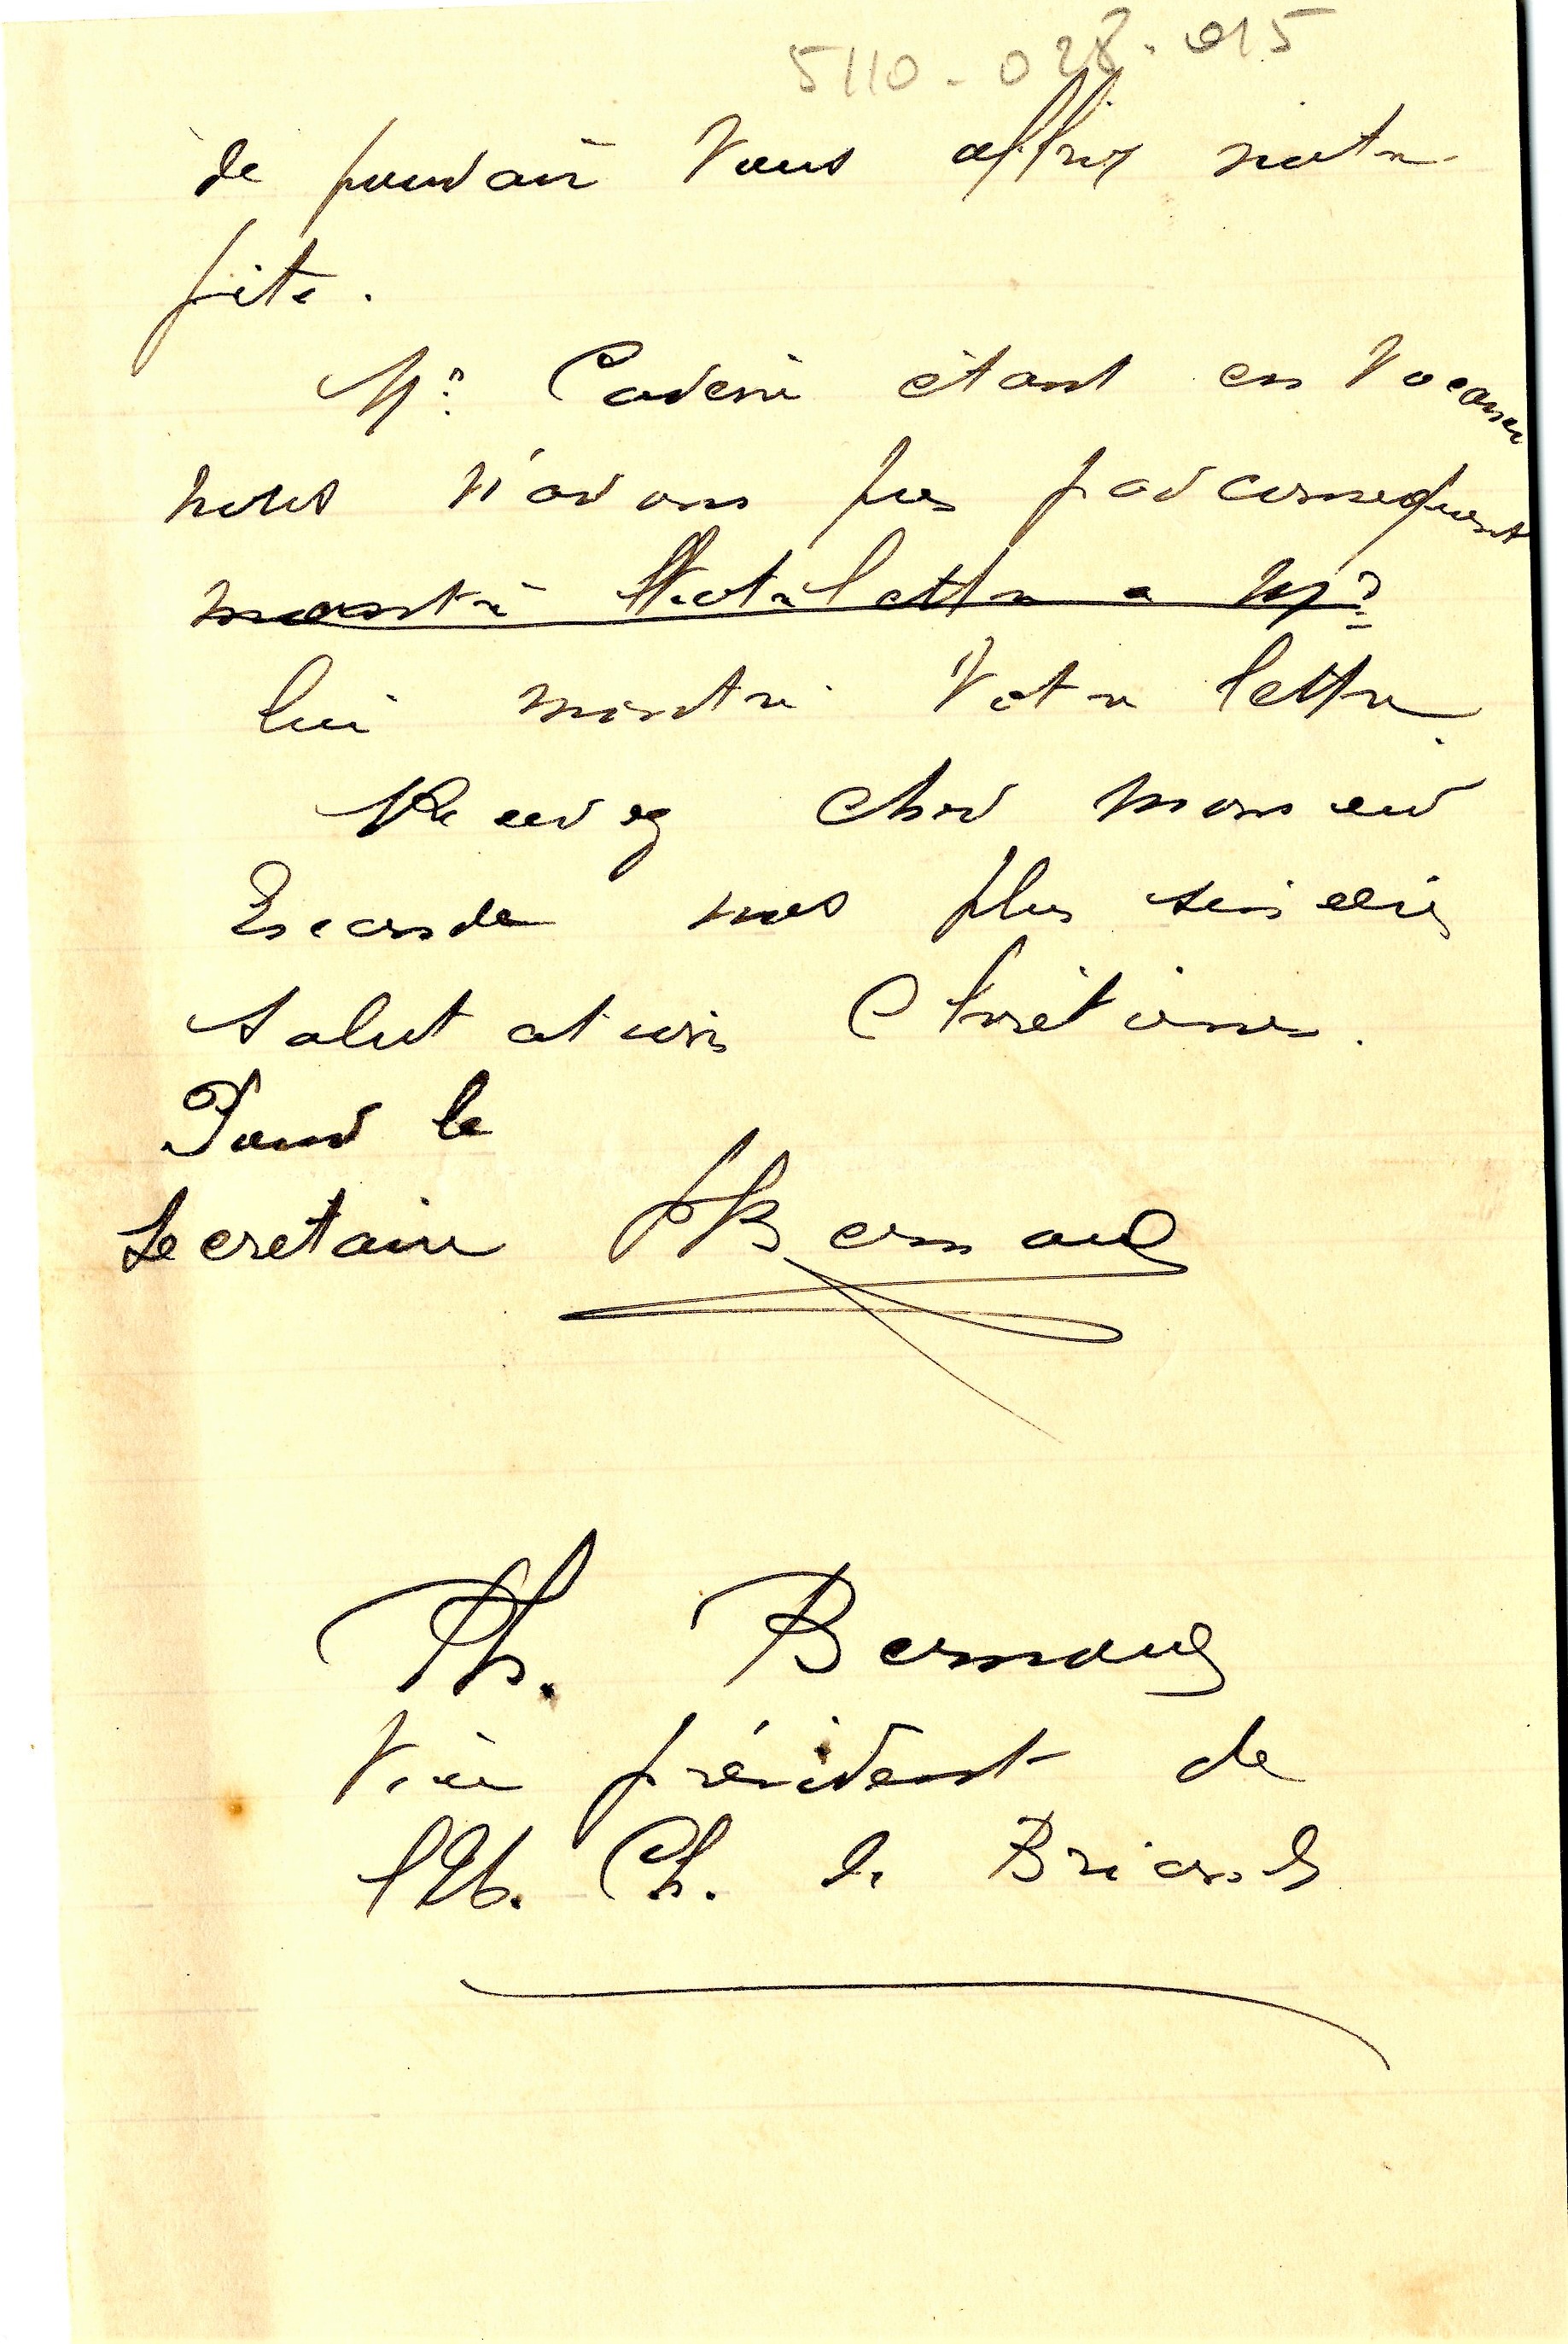 5110-028-015
de pouvoir Vous offrir notre
fête.
Mr étant en Vacances
nous n'avons pas par conséquent
montré Votre lettre a Mr
lui montré Votre lettre.
Recevez cher monsieur
Escande nos plus sincères
salutations Chrétiennes.
Pour le
Secretaire Bernard
Th. Bernard
Vice président de
l'Un. Ch. de